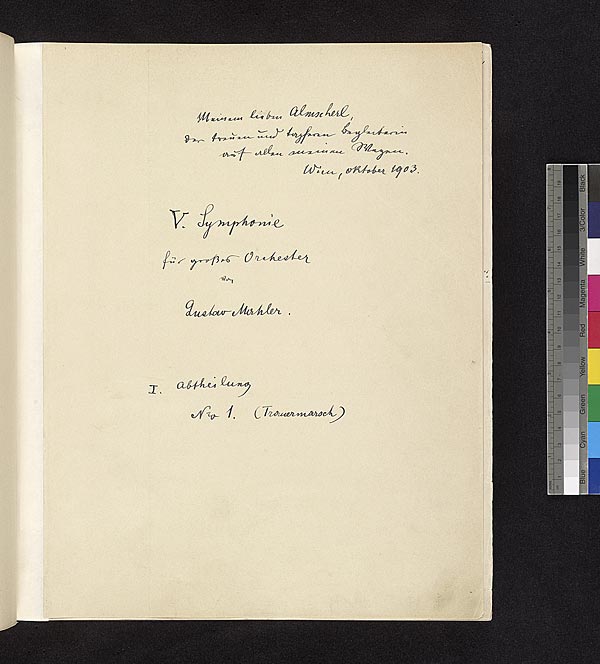 Meinem lieben Almscherl,
der treuen und tapferen Begleiterin
auf allen meinen Wegen.
Wien, Oktober 1903.
V. Symphonie
für großes Orchester
von
Gustav Mahler.
I. Abtheilung
Nro 1. (Trauermarsch)
Black
3/Color
White
Magenta
Red
Yellow
Green
Cyan
Blue